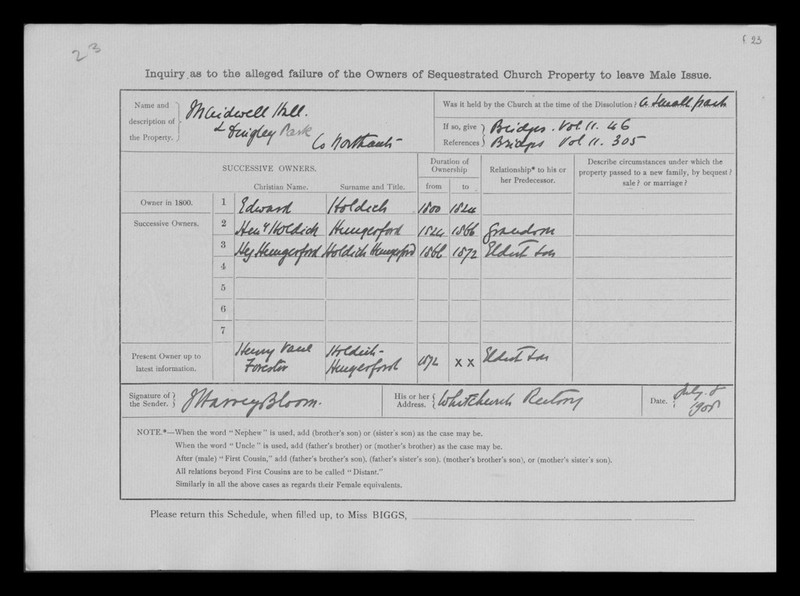 23
f 23
Inquiry as to the alleged failure of the Owners of Sequestrated Church Property to leave Male Issue.
Name and
description of
the Property.
Maidwell Hall.
& Dingley Park
Co Northants
Was it held by the Church at the time of the Dissolution? A small part
If so, give
References
Bridges. Vol 11. 46
Bridges Vol 11. 305
SUCCESSIVE OWNERS.
Christian Name. Surname and Title.
Duration of
Ownership
from to
Relationship* to his or
her Predecessor.
Describe circumstances under which the
property passed to a new family, by bequest?
sale? or marriage?
Owner in 1800. 1 Edward Holdich 1800 1824
Successive Owners. 2 Heny Holdich Hungerford 1824 1866 Grandson
3 Hy Hungerford Holdich Hungerford 1866 1872 Eldest son
4
5
6
7
Present Owner up to
latest information.
Henry Vane
Forester
Holdich-
Hungerford
1872 x x Eldest son
Signature of
the Sender.
J Harvey Bloom.
His or her
Address.
Whitchurch Rectory
Date.
July 8
1908
NOTE.*—When the word "Nephew" is used, add (brother's son) or (sister's son) as the case may be.
When the word "Uncle" is used, add (father's brother) or (mother's brother) as the case may be.
After (male) "First Cousin," add (father's brother's son), (father's sister's son), (mother's brother's son), or (mother's sister's son).
All relations beyond First Cousins are to be called "Distant."
Similarly in all the above cases as regards their Female equivalents.
Please return this Schedule, when filled up, to Miss BIGGS,